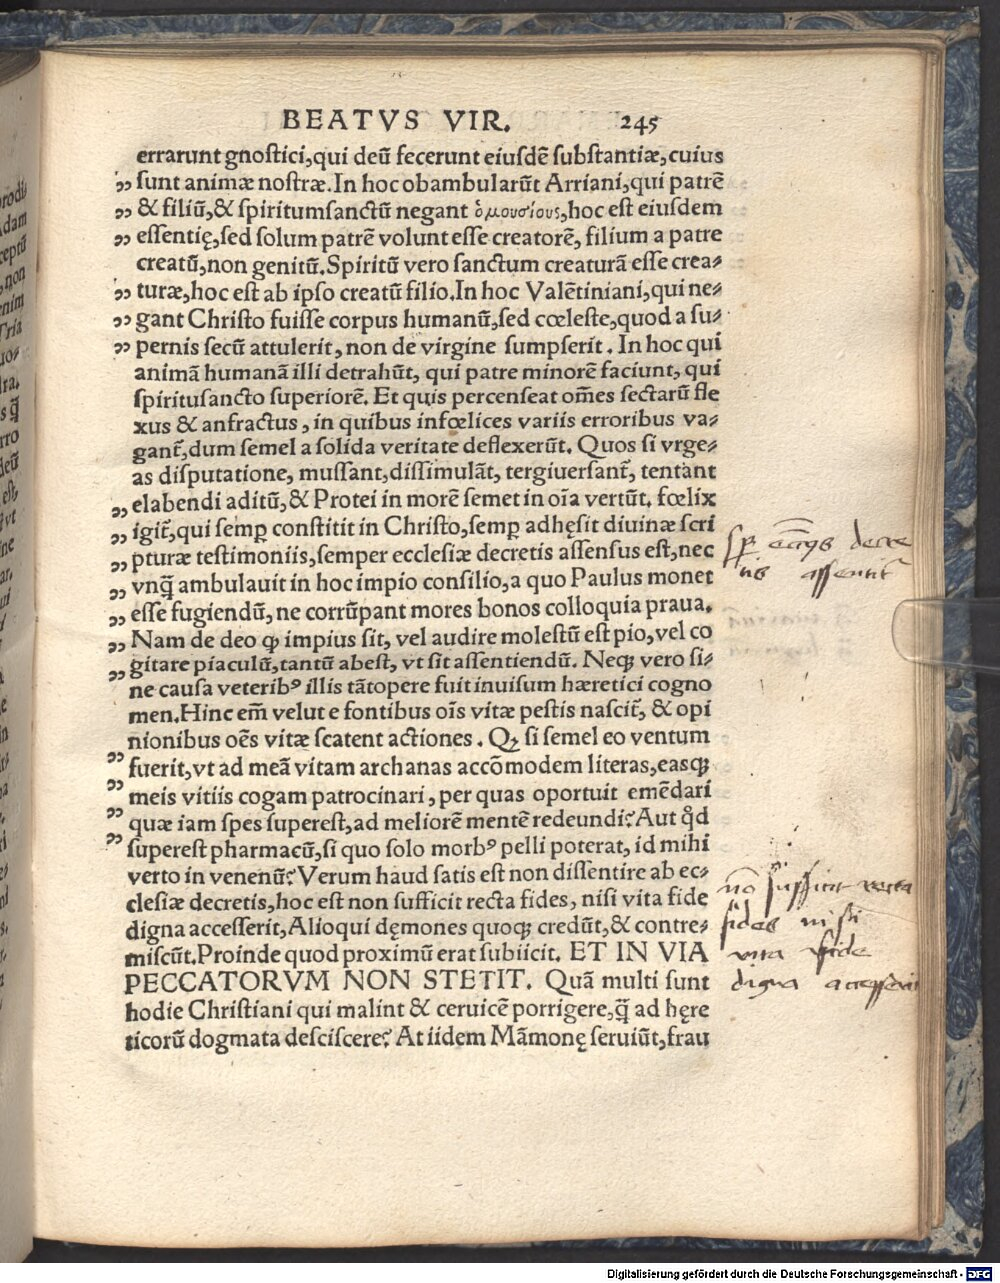 BEATVS VIR. 245
errarunt gnostici, qui deũ fecerunt eiusdẽ substantiæ, cuius
sunt animæ nostræ. In hoc obambularũt Arriani, qui patrẽ
& filiũ, & spiritumsanctũ negant ὁμουσίους, hoc est eiusdem
essentię, sed solum patrẽ volunt esse creatorẽ, filium a patre
creatũ, non genitũ. Spiritũ vero sanctum creaturã esse crea⸗
turæ, hoc est ab ipso creatũ filio. In hoc Valẽtiniani, qui ne⸗
gant Christo fuisse corpus humanũ, sed cœleste, quod a su⸗
pernis secũ attulerit, non de virgine sumpserit. In hoc qui
animã humanã illi detrahũt, qui patre minorẽ faciunt, qui
spiritusancto superiorẽ. Et quis percenseat om̃es sectarũ fle
xus & anfractus, in quibus infœlices variis erroribus va⸗
gant̃, dum semel a solida veritate deflexerũt. Quos si vrge⸗
as disputatione, mussant, dissimulãt, tergiuersant̃, tentant
elabendi aditũ, & Protei in morẽ semet in oĩa vertũt. fœlix
igit̃, qui semꝑ constitit in Christo, semꝑ adhęsit diuinæ scri
pturæ testimoniis, semper ecclesiæ decretis assensus est, nec
vnq̃ ambulauit in hoc impio consilio, a quo Paulus monet
esse fugiendũ, ne corrũpant mores bonos colloquia praua.
Nam de deo ꝙ impius sit, vel audire molestũ est pio, vel co
gitare piaculũ, tantũ abest, vt sit assentiendũ. Neqꝫ vero si⸗
ne causa veteribꝰ illis tãtopere fuit inuisum hæretici cogno
men. Hinc em̃ velut e fontibus oĩs vitæ pestis nascit̃, & opi
nionibus oẽs vitæ scatent actiones. Qꝫ si semel eo ventum
fuerit, vt ad meã vitam archanas accõmodem literas, easqꝫ
meis vitiis cogam patrocinari, per quas oportuit emẽdari
quæ iam spes superest, ad meliorẽ mentẽ redeundi? Aut q̊d
superest pharmacũ, si quo solo morbꝰ pelli poterat, id mihi
verto in venenũ? Verum haud satis est non dissentire ab ec⸗
clesiæ decretis, hoc est non sufficit recta fides, nisi vita fide
digna accesserit, Alioqui dęmones quoqꝫ credũt, & contre⸗
miscũt. Proinde quod proximũ erat subiicit. ET IN VIA
PECCATORVM NON STETIT. Quã multi sunt
hodie Christiani qui malint & ceruicẽ porrigere, q̃ ad hęre
ticorũ dogmata desciscere? At iidem Mãmonę seruiũt, frau
non sufficit recta
fides nisi
vita fide
digna accesserit
Digitalisierung gefördert durch die Deutsche Forschungsgemeinschaft - DFG